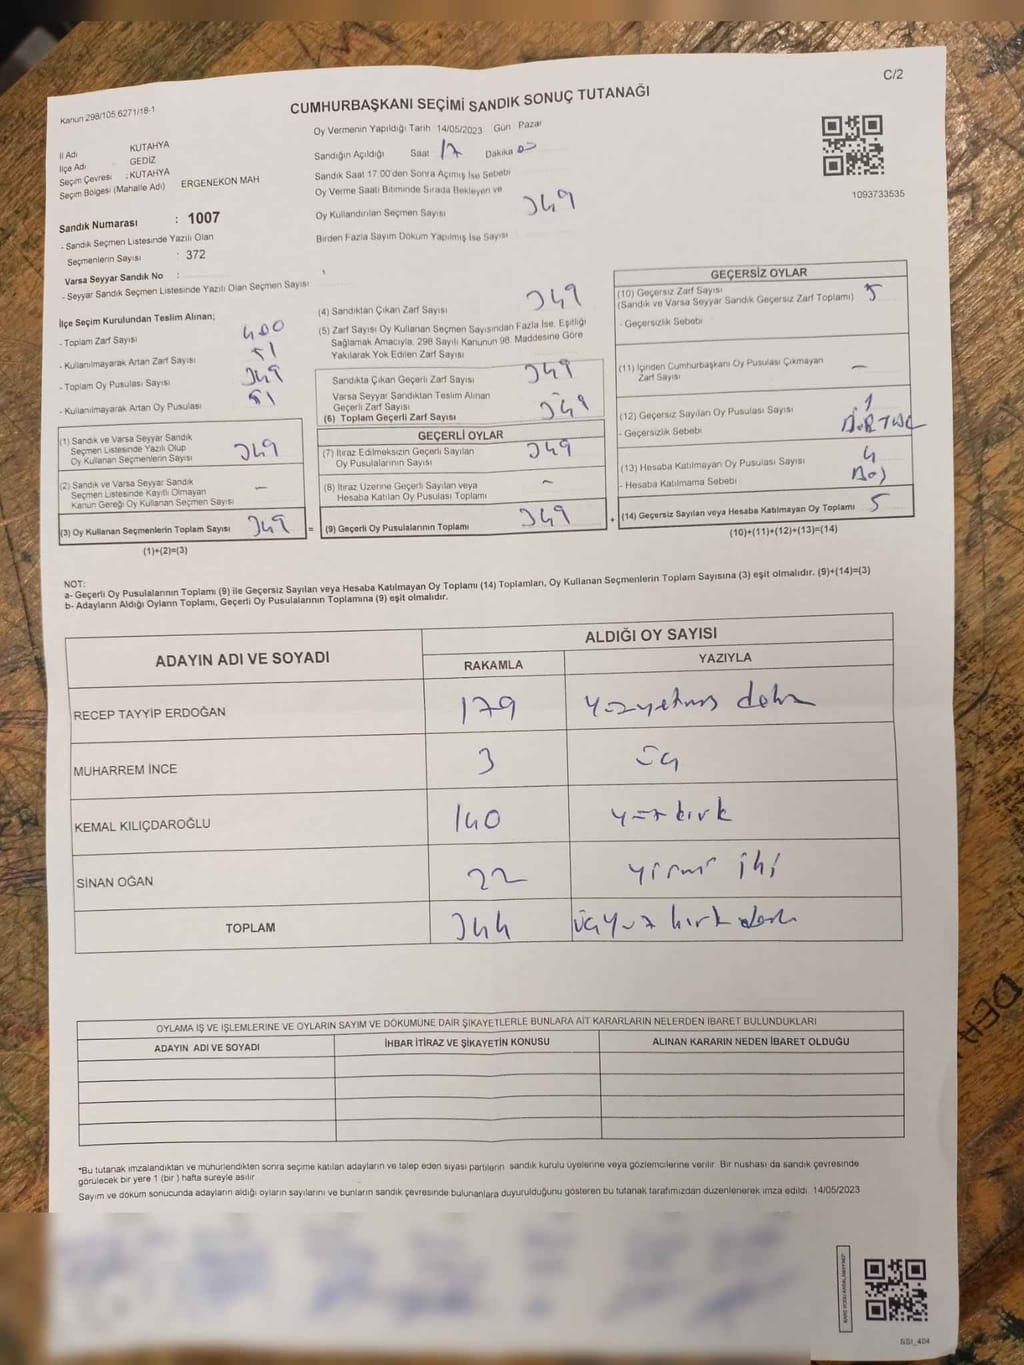 C/2
Kanun 298/105,6271/18-1
CUMHURBAŞKANI SEÇİMİ SANDIK SONUÇ TUTANAĞI
İl Adı KUTAHYA
İlçe Adı GEDİZ
Seçim Çevresi : KUTAHYA
Seçim Bölgesi (Mahalle Adı) ERGENEKON MAH
Sandık Numarası : 1007
- Sandık Seçmen Listesinde Yazılı Olan
Seçmenlerin Sayısı : 372
Varsa Seyyar Sandık No :
- Seyyar Sandık Seçmen Listesinde Yazılı Olan Seçmen Sayısı
Oy Vermenin Yapıldığı Tarih 14/05/2023 Gün Pazar
Sandığın Açıldığı Saat 17 Dakika 00
Sandık Saat 17.00'den Sonra Açımış İse Sebebi
Oy Verme Saati Bitiminde Sırada Bekleyen ve
Oy Kullandırılan Seçmen Sayısı 349
Birden Fazla Sayım Döküm Yapılmış İse Sayısı
1093733535
İlçe Seçim Kurulundan Teslim Alınan;
- Toplam Zarf Sayısı 400
- Kullanılmayarak Artan Zarf Sayısı 51
- Toplam Oy Pusulası Sayısı 349
- Kullanılmayarak Artan Oy Pusulası 51
(1) Sandık ve Varsa Seyyar Sandık
Seçmen Listesinde Yazılı Olup
Oy Kullanan Seçmenlerin Sayısı 349
(2) Sandık ve Varsa Seyyar Sandık
Seçmen Listesinde Kayıtlı Olmayan
Kanun Gereği Oy Kullanan Seçmen Sayısı –
(3) Oy Kullanan Seçmenlerin Toplam Sayısı 349 =
(1)+(2)=(3)
(4) Sandıktan Çıkan Zarf Sayısı 349
(5) Zarf Sayısı Oy Kullanan Seçmen Sayısından Fazla İse, Eşitliği
Sağlamak Amacıyla, 298 Sayılı Kanunun 98. Maddesine Göre
Yakılarak Yok Edilen Zarf Sayısı
Sandıkta Çıkan Geçerli Zarf Sayısı 349
Varsa Seyyar Sandıktan Teslim Alınan
Geçerli Zarf Sayısı
(6) Toplam Geçerli Zarf Sayısı 349
GEÇERLİ OYLAR
(7) İtiraz Edilmeksizin Geçerli Sayılan
Oy Pusulalarının Sayısı 349
(8) İtiraz Üzerine Geçerli Sayılan veya
Hesaba Katılan Oy Pusulası Toplamı –
(9) Geçerli Oy Pusulalarının Toplamı 349 +
GEÇERSİZ OYLAR
(10) Geçersiz Zarf Sayısı 5
(Sandık ve Varsa Seyyar Sandık Geçersiz Zarf Toplamı)
- Geçersizlik Sebebi
(11) İçinden Cumhurbaşkanı Oy Pusulası Çıkmayan
Zarf Sayısı –
(12) Geçersiz Sayılan Oy Pusulası Sayısı 1
- Geçersizlik Sebebi
(13) Hesaba Katılmayan Oy Pusulası Sayısı 4
- Hesaba Katılmama Sebebi Boş
(14) Geçersiz Sayılan veya Hesaba Katılmayan Oy Toplamı 5
(10)+(11)+(12)+(13)=(14)
NOT:
a- Geçerli Oy Pusulalarının Toplamı (9) ile Geçersiz Sayılan veya Hesaba Katılmayan Oy Toplamı (14) Toplamları, Oy Kullanan Seçmenlerin Toplam Sayısına (3) eşit olmalıdır. (9)+(14)=(3)
b- Adayların Aldığı Oyların Toplamı, Geçerli Oy Pusulalarının Toplamına (9) eşit olmalıdır.
ADAYIN ADI VE SOYADI
ALDIĞI OY SAYISI
RAKAMLA YAZIYLA
RECEP TAYYİP ERDOĞAN 179 yüzyetmiş dokuz
MUHARREM İNCE 3 üç
KEMAL KILIÇDAROĞLU 140 yüz kırk
SİNAN OĞAN 22 yirmi iki
TOPLAM 344 üçyüz kırk dört
OYLAMA İŞ VE İŞLEMLERİNE VE OYLARIN SAYIM VE DÖKÜMÜNE DAİR ŞİKAYETLERLE BUNLARA AİT KARARLARIN NELERDEN İBARET BULUNDUKLARI
ADAYIN ADI VE SOYADI İHBAR İTİRAZ VE ŞİKAYETİN KONUSU ALINAN KARARIN NEDEN İBARET OLDUĞU
*Bu tutanak imzalandıktan ve mühürlendikten sonra seçime katılan adayların ve talep eden siyasi partilerin sandık kurulu üyelerine veya gözlemcilerine verilir. Bir nüshası da sandık çevresinde
görülecek bir yere 1 (bir) hafta süreyle asılır
Sayım ve döküm sonucunda adayların aldığı oyların sayılarını ve bunların sandık çevresinde bulunanlara duyurulduğunu gösteren bu tutanak tarafımızdan düzenlenerek imza edildi. 14/05/2023
SSI_404